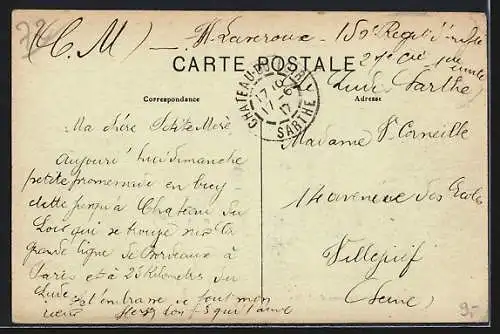 (C. M) — H Laveroux — 150e Regit d'infie
CARTE POSTALE
21e Cie
Lude Sarthe
Correspondance
Adresse
CHATEAU-DU-LOIR
17 17-6 17
SARTHE
Ma chère Petite Mère
Aujourd'hui dimanche
petite promenade en bicy-
clette jusqu'à Chateau du
Loir qui se trouve sur la
grande ligne de Bordeaux à
Paris et à 25 kilometres du
Lude
je t'embrasse de tout mon
cœur
ton fils qui t'aime
Madame Vve Corneille
14 avenue des Ecoles
Villejuif
(Seine)
9.-